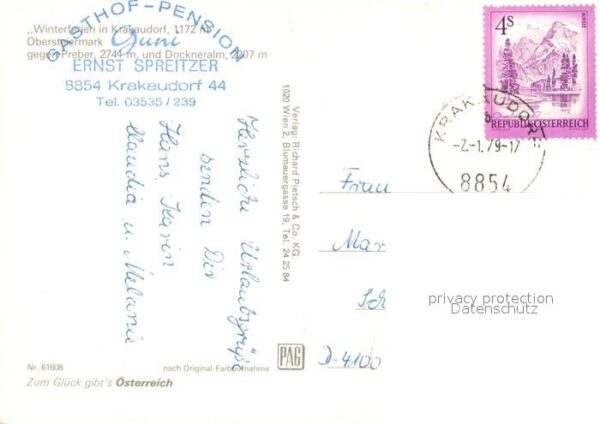 „Winterferien in Krakaudorf, 1172 m
Obersteiermark
gegen Preber, 2741 m, und Dockneralm, 2207 m
GASTHOF-PENSION
ERNST SPREITZER
8854 Krakaudorf 44
Tel. 03535/239
Herzliche Urlaubsgrüße
senden Dir
Hans, Karin
Claudia u. Melanie
Nr. 61608
nach Original-Farbaufnahme
Zum Glück gibt's Österreich
Verlag: Richard Pietsch & Co. KG.
1020 Wien 2, Blumauergasse 19, Tel. 24 25 84
PAG
4S
REPUBLIK ÖSTERREICH
KRAKAUDORF
b
-2.-1.79-17
8854
Frau
Mar
Sch
D-4100
privacy protection
Datenschutz